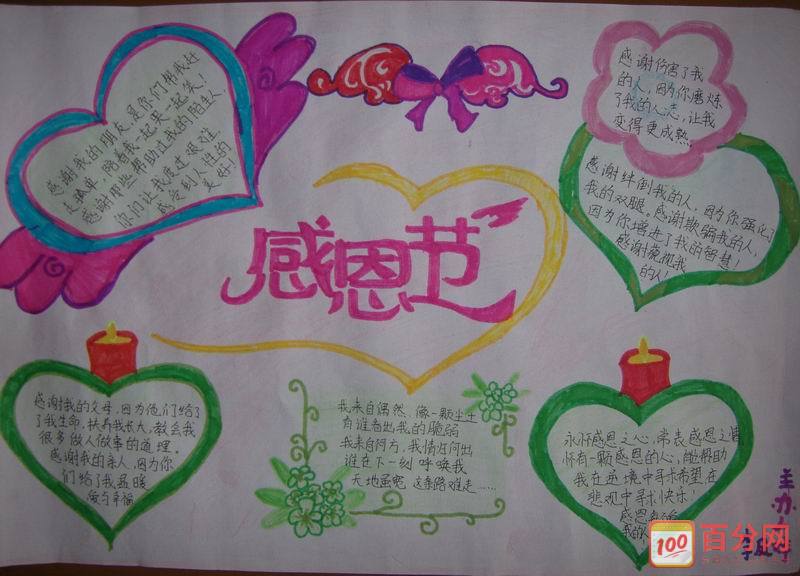 感谢我的朋友,是你们帮我赶
走孤单,陪着我一起哭一起笑!
感谢那些帮助过我的陌生人,
你们让我度过艰难
感受到人性的
美好!
感谢伤害了我
的人,因为你磨炼
了我的心志,让我
变得更成熟。
感谢绊倒我的人,因为你强化了
我的双腿。感谢欺骗我的人,
因为你增进了我的智慧!
感谢藐视我
的人!
感恩节
感谢我的父母,因为他们给了
了我生命,扶养我长大,教会我
很多做人做事的道理。
感谢我的亲人,因为你
们给了我温暖
和幸福
我来自偶然,像一颗尘土
有谁看出我的脆弱
我来自何方,我情归何出
谁在下一刻呼唤我
天地虽宽 这条路难走……
永怀感恩之心,常表感恩之情
怀有一颗感恩的心,能帮助
我在逆境中寻求希望在
悲观中寻求快乐!
感恩
我的
主办
100 百分网